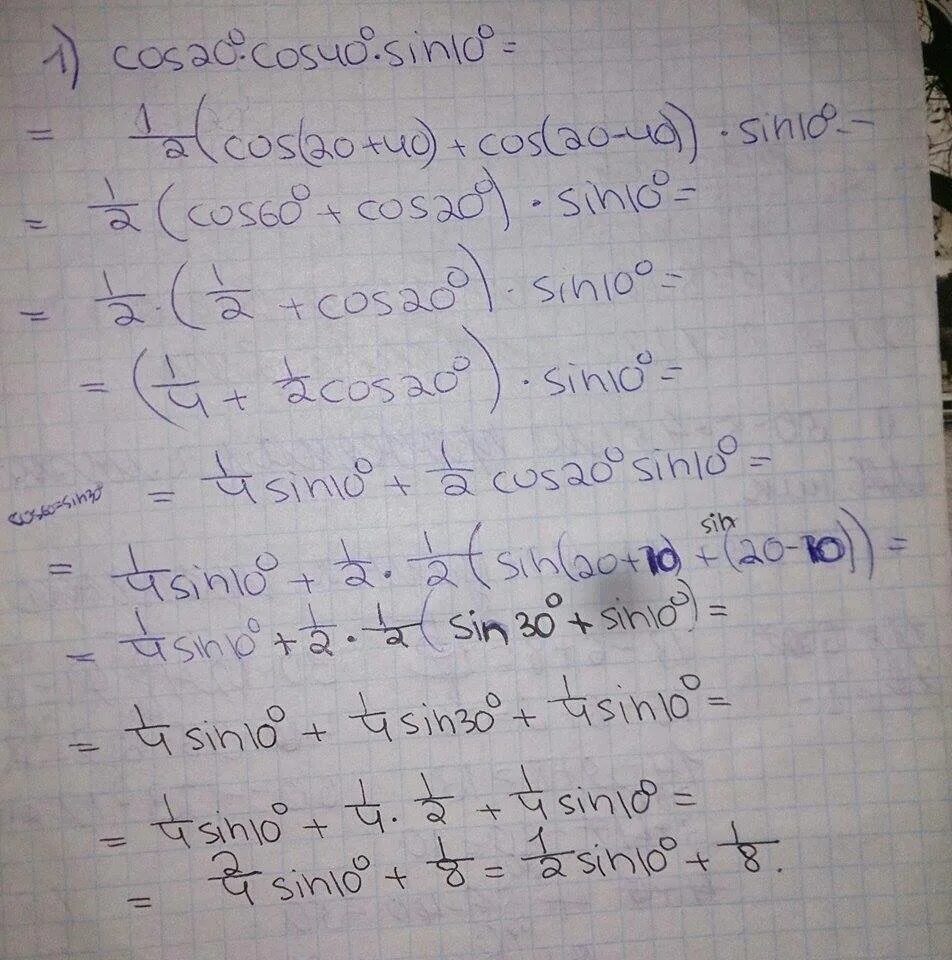 1) cos20°·cos40°·sin10°=
= 1/2(cos(20+40)+cos(20-40))·sin10°=
= 1/2(cos60°+cos20°)·sin10°=
= 1/2·(1/2+cos20°)·sin10°=
= (1/4+1/2cos20°)·sin10°=
cos60=sin30° = 1/4sin10°+1/2cos20°sin10°=
= 1/4sin10°+1/2·1/2(sin(20+10)+sin(20-10))=
= 1/4sin10°+1/2·1/2(sin30°+sin10°)=
= 1/4sin10°+1/4sin30°+1/4sin10°=
= 1/4sin10°+1/4·1/2+1/4sin10°=
= 2/4sin10°+1/8=1/2sin10°+1/8.